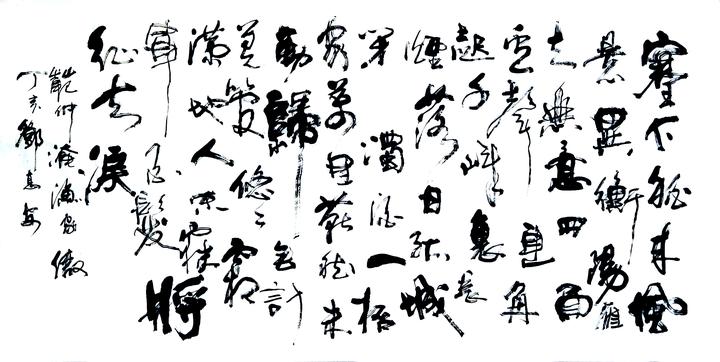 塞下秋来風
景異衡陽雁
去無意四面
邊聲連角
起千嶂裏長
煙落日孤城
閉濁酒一杯
家萬里燕然未
勒歸無計
羌管悠悠霜
滿地人不寐將
軍白髮
征夫淚
范仲淹漁家傲
丁亥鄧